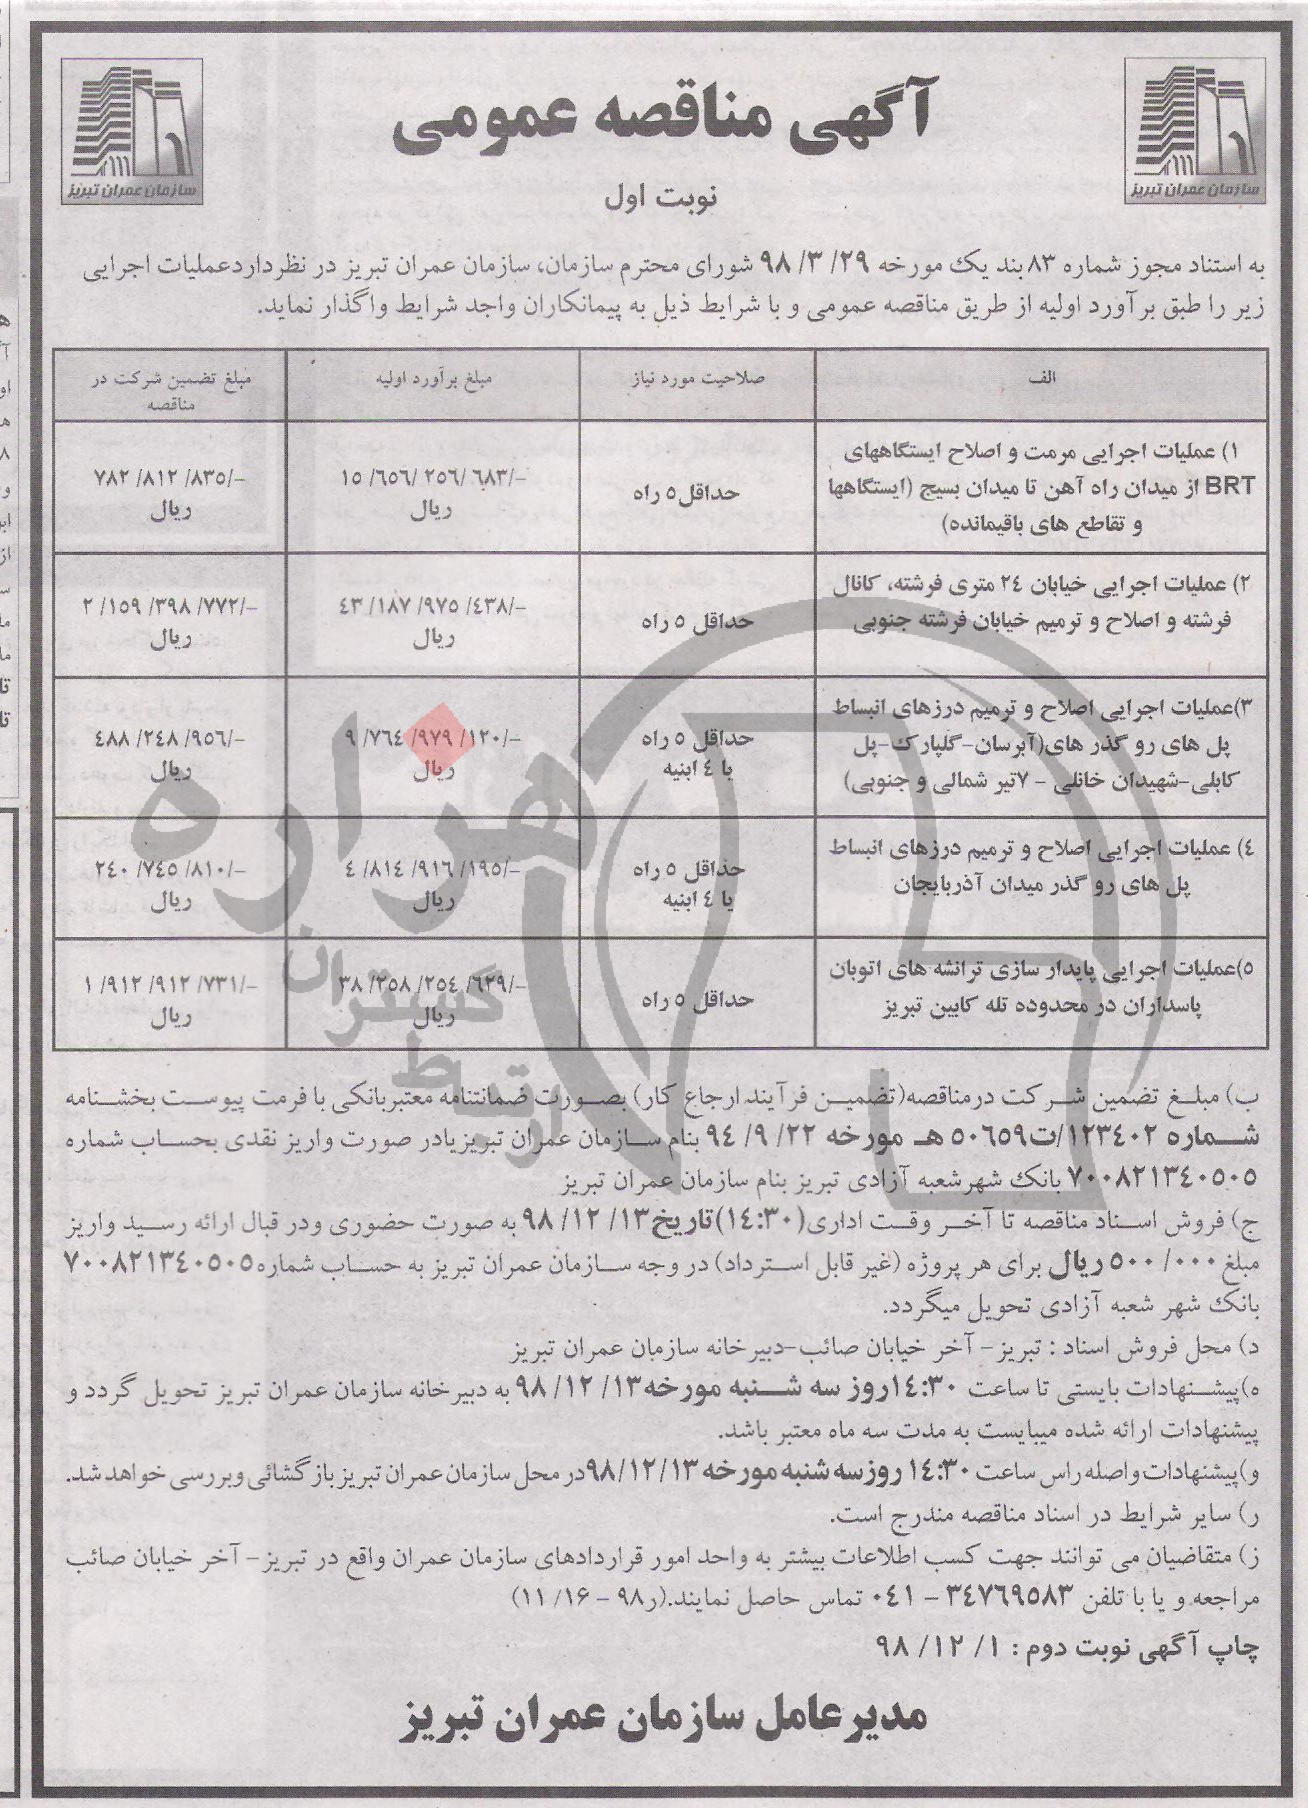 سازمان عمران تبریز
سازمان عمران تبریز
آگهی مناقصه عمومی
نوبت اول
به استناد مجوز شماره ۸۳ بند یک مورخه ۲۹/ ۳/ ۹۸ شورای محترم سازمان، سازمان عمران تبریز در نظر دارد عملیات اجرایی
زیر را طبق برآورد اولیه از طریق مناقصه عمومی و با شرایط ذیل به پیمانکاران واجد شرایط واگذار نماید.
الف
صلاحیت مورد نیاز
مبلغ برآورد اولیه
مبلغ تضمین شرکت در
مناقصه
۱) عملیات اجرایی مرمت و اصلاح ایستگاههای
BRT از میدان راه آهن تا میدان بسیج (ایستگاهها
و تقاطع های باقیمانده)
حداقل ۵ راه
۱۵ /۶۵۶/ ۲۵۶/ ۶۸۳/-
ریال
۷۸۲ /۸۱۲ /۸۳۵/-
ریال
۲) عملیات اجرایی خیابان ۲۴ متری فرشته، کانال
فرشته و اصلاح و ترمیم خیابان فرشته جنوبی
حداقل ۵ راه
۴۳ /۱۸۷ /۹۷۵ /۴۳۸/-
ریال
۲ /۱۵۹ /۳۹۸ /۷۷۲/-
ریال
۳)عملیات اجرایی اصلاح و ترمیم درزهای انبساط
پل های رو گذر های(آبرسان-گلپارک-پل
کابلی-شهیدان خانلی - ۷تیر شمالی و جنوبی)
حداقل ۵ راه
یا ۴ ابنیه
۹ /۷۶۴ /۹۷۹ /۱۲۰/-
ریال
۴۸۸ /۲۴۸ /۹۵۶/-
ریال
۴) عملیات اجرایی اصلاح و ترمیم درزهای انبساط
پل های رو گذر میدان آذربایجان
حداقل ۵ راه
یا ۴ ابنیه
۴ /۸۱۴ /۹۱۶ /۱۹۵/-
ریال
۲۴۰ /۷۴۵ /۸۱۰/-
ریال
۵)عملیات اجرایی پایدار سازی ترانشه های اتوبان
پاسداران در محدوده تله کابین تبریز
حداقل ۵ راه
۳۸ /۲۵۸ /۲۵۴ /۶۲۹/-
ریال
۱ /۹۱۲ /۹۱۲ /۷۳۱/-
ریال
ب) مبلغ تضمین شرکت در مناقصه(تضمین فرآیند ارجاع کار) بصورت ضمانتنامه معتبر بانکی با فرمت پیوست بخشنامه
شماره ۱۲۳۴۰۲/ت۵۰۶۵۹ هـ مورخه ۲۲/ ۹/ ۹۴ بنام سازمان عمران تبریز یا در صورت واریز نقدی بحساب شماره
۷۰۰۸۲۱۳۴۰۵۰۵ بانک شهر شعبه آزادی تبریز بنام سازمان عمران تبریز
ج) فروش اسناد مناقصه تا آخر وقت اداری(۱۴:۳۰)تاریخ۱۳/ ۱۲/ ۹۸ به صورت حضوری و در قبال ارائه رسید واریز
مبلغ ۵۰۰/۰۰۰ ریال برای هر پروژه (غیر قابل استرداد) در وجه سازمان عمران تبریز به حساب شماره۷۰۰۸۲۱۳۴۰۵۰۵
بانک شهر شعبه آزادی تحویل میگردد.
د) محل فروش اسناد : تبریز- آخر خیابان صائب-دبیرخانه سازمان عمران تبریز
ه)پیشنهادات بایستی تا ساعت ۱۴:۳۰روز سه شنبه مورخه۱۳/ ۱۲/ ۹۸ به دبیرخانه سازمان عمران تبریز تحویل گردد و
پیشنهادات ارائه شده میبایست به مدت سه ماه معتبر باشد.
و)پیشنهادات واصله راس ساعت ۱۴:۳۰ روز سه شنبه مورخه ۹۸/۱۲/۱۳در محل سازمان عمران تبریز باز گشائی و بررسی خواهد شد.
ر) سایر شرایط در اسناد مناقصه مندرج است.
ز) متقاضیان می توانند جهت کسب اطلاعات بیشتر به واحد امور قراردادهای سازمان عمران واقع در تبریز- آخر خیابان صائب
مراجعه و یا با تلفن ۳۴۷۶۹۵۸۳ - ۰۴۱ تماس حاصل نمایند.(ر۹۸ - ۱۶/ ۱۱)
چاپ آگهی نوبت دوم : ۱/ ۱۲/ ۹۸
مدیرعامل سازمان عمران تبریز
هزاره
گستران
ارتباط